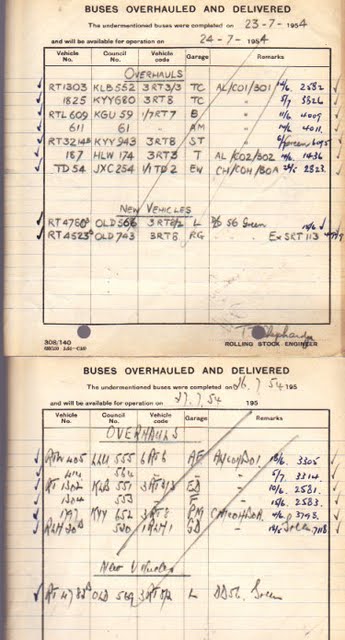 BUSES OVERHAULED AND DELIVERED
The undermentioned buses were completed on 23-7-1954
and will be available for operation on 24-7-1954
Vehicle No. Council No. Vehicle code Garage Remarks
OVERHAULS
RT1303 KLB552 3RT3/3 TC AL/CO1/301 2582
1825 KYY680 3RT8 TC " 5/7 3826
RTL609 KGU 59 1/7RT7 B " 4009
611 61 " AM " 4011
RT3214 KYY943 3RT8 ST " green 6095
187 HLW 174 3RT3 T AL/CO2/302 1436
TD54 JXC254 1/1TD2 EW CH/COH/BOA 2823
NEW VEHICLES
RT4780 OLD 566 3RT8/2 L 56 Green
RT4523 OLD743 3RT8 RG Ex SRT 113
308/140
ROLLING STOCK ENGINEER
BUSES OVERHAULED AND DELIVERED
The undermentioned buses were completed on 26.7.54 195
and will be available for operation on 27.7.54 195
Vehicle No. Council No. Vehicle code Garage Remarks
OVERHAULS
405 LLU 555 6RT6 AF 18/6. 3305
5/7. 3314
RT1302 KLB 551 3RT3/3 ED 10/6. 2581
1304 553 " F " 15/6. 2583
1797 KYY 652 3RT8 PM 3798
RLH30 530 1RLH1 GD Green 7118
New Vehicles
RT4783 OLD 569 3RT8/2 L DD56. Green